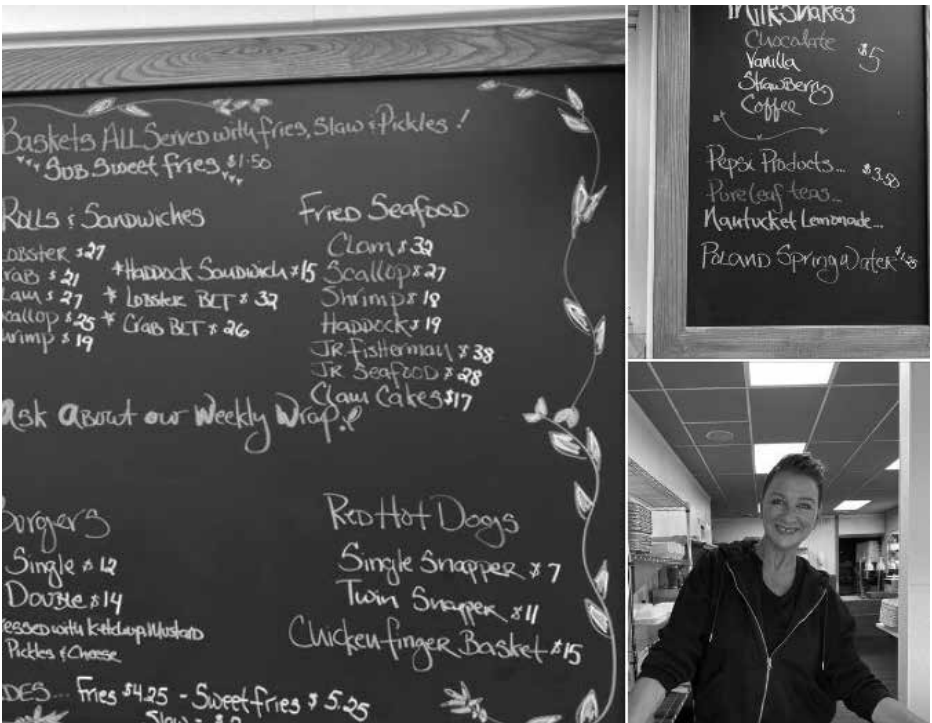 Baskets ALL Served with fries, Slaw & Pickles!
SUB Sweet fries $1.50
Rolls & Sandwiches
Lobster $27
Crab $21
Clam $27
Scallop $25
Shrimp $19
*Haddock Sandwich $15
* Lobster BLT $32
* Crab BLT $26
Fried Seafood
Clam $32
Scallop $27
Shrimp $18
Haddock $19
JR. fisherman $38
JR Seafood $28
Clam Cakes $17
Ask About our Weekly Wrap!
Burgers
Single $12
Double $14
essed with Ketchup, Mustard
Pickles & Cheese
Red Hot Dogs
Single Snapper $7
Twin Snapper $11
Chicken finger Basket $15
DES... Fries $4.25 - Sweet fries $5.25
Slaw
Milkshakes
Chocolate
Vanilla
Strawberry
Coffee
$5
Pepsi Products... $3.50
Pure leaf teas...
Nantucket Lemonade...
Poland Spring Water $1.25